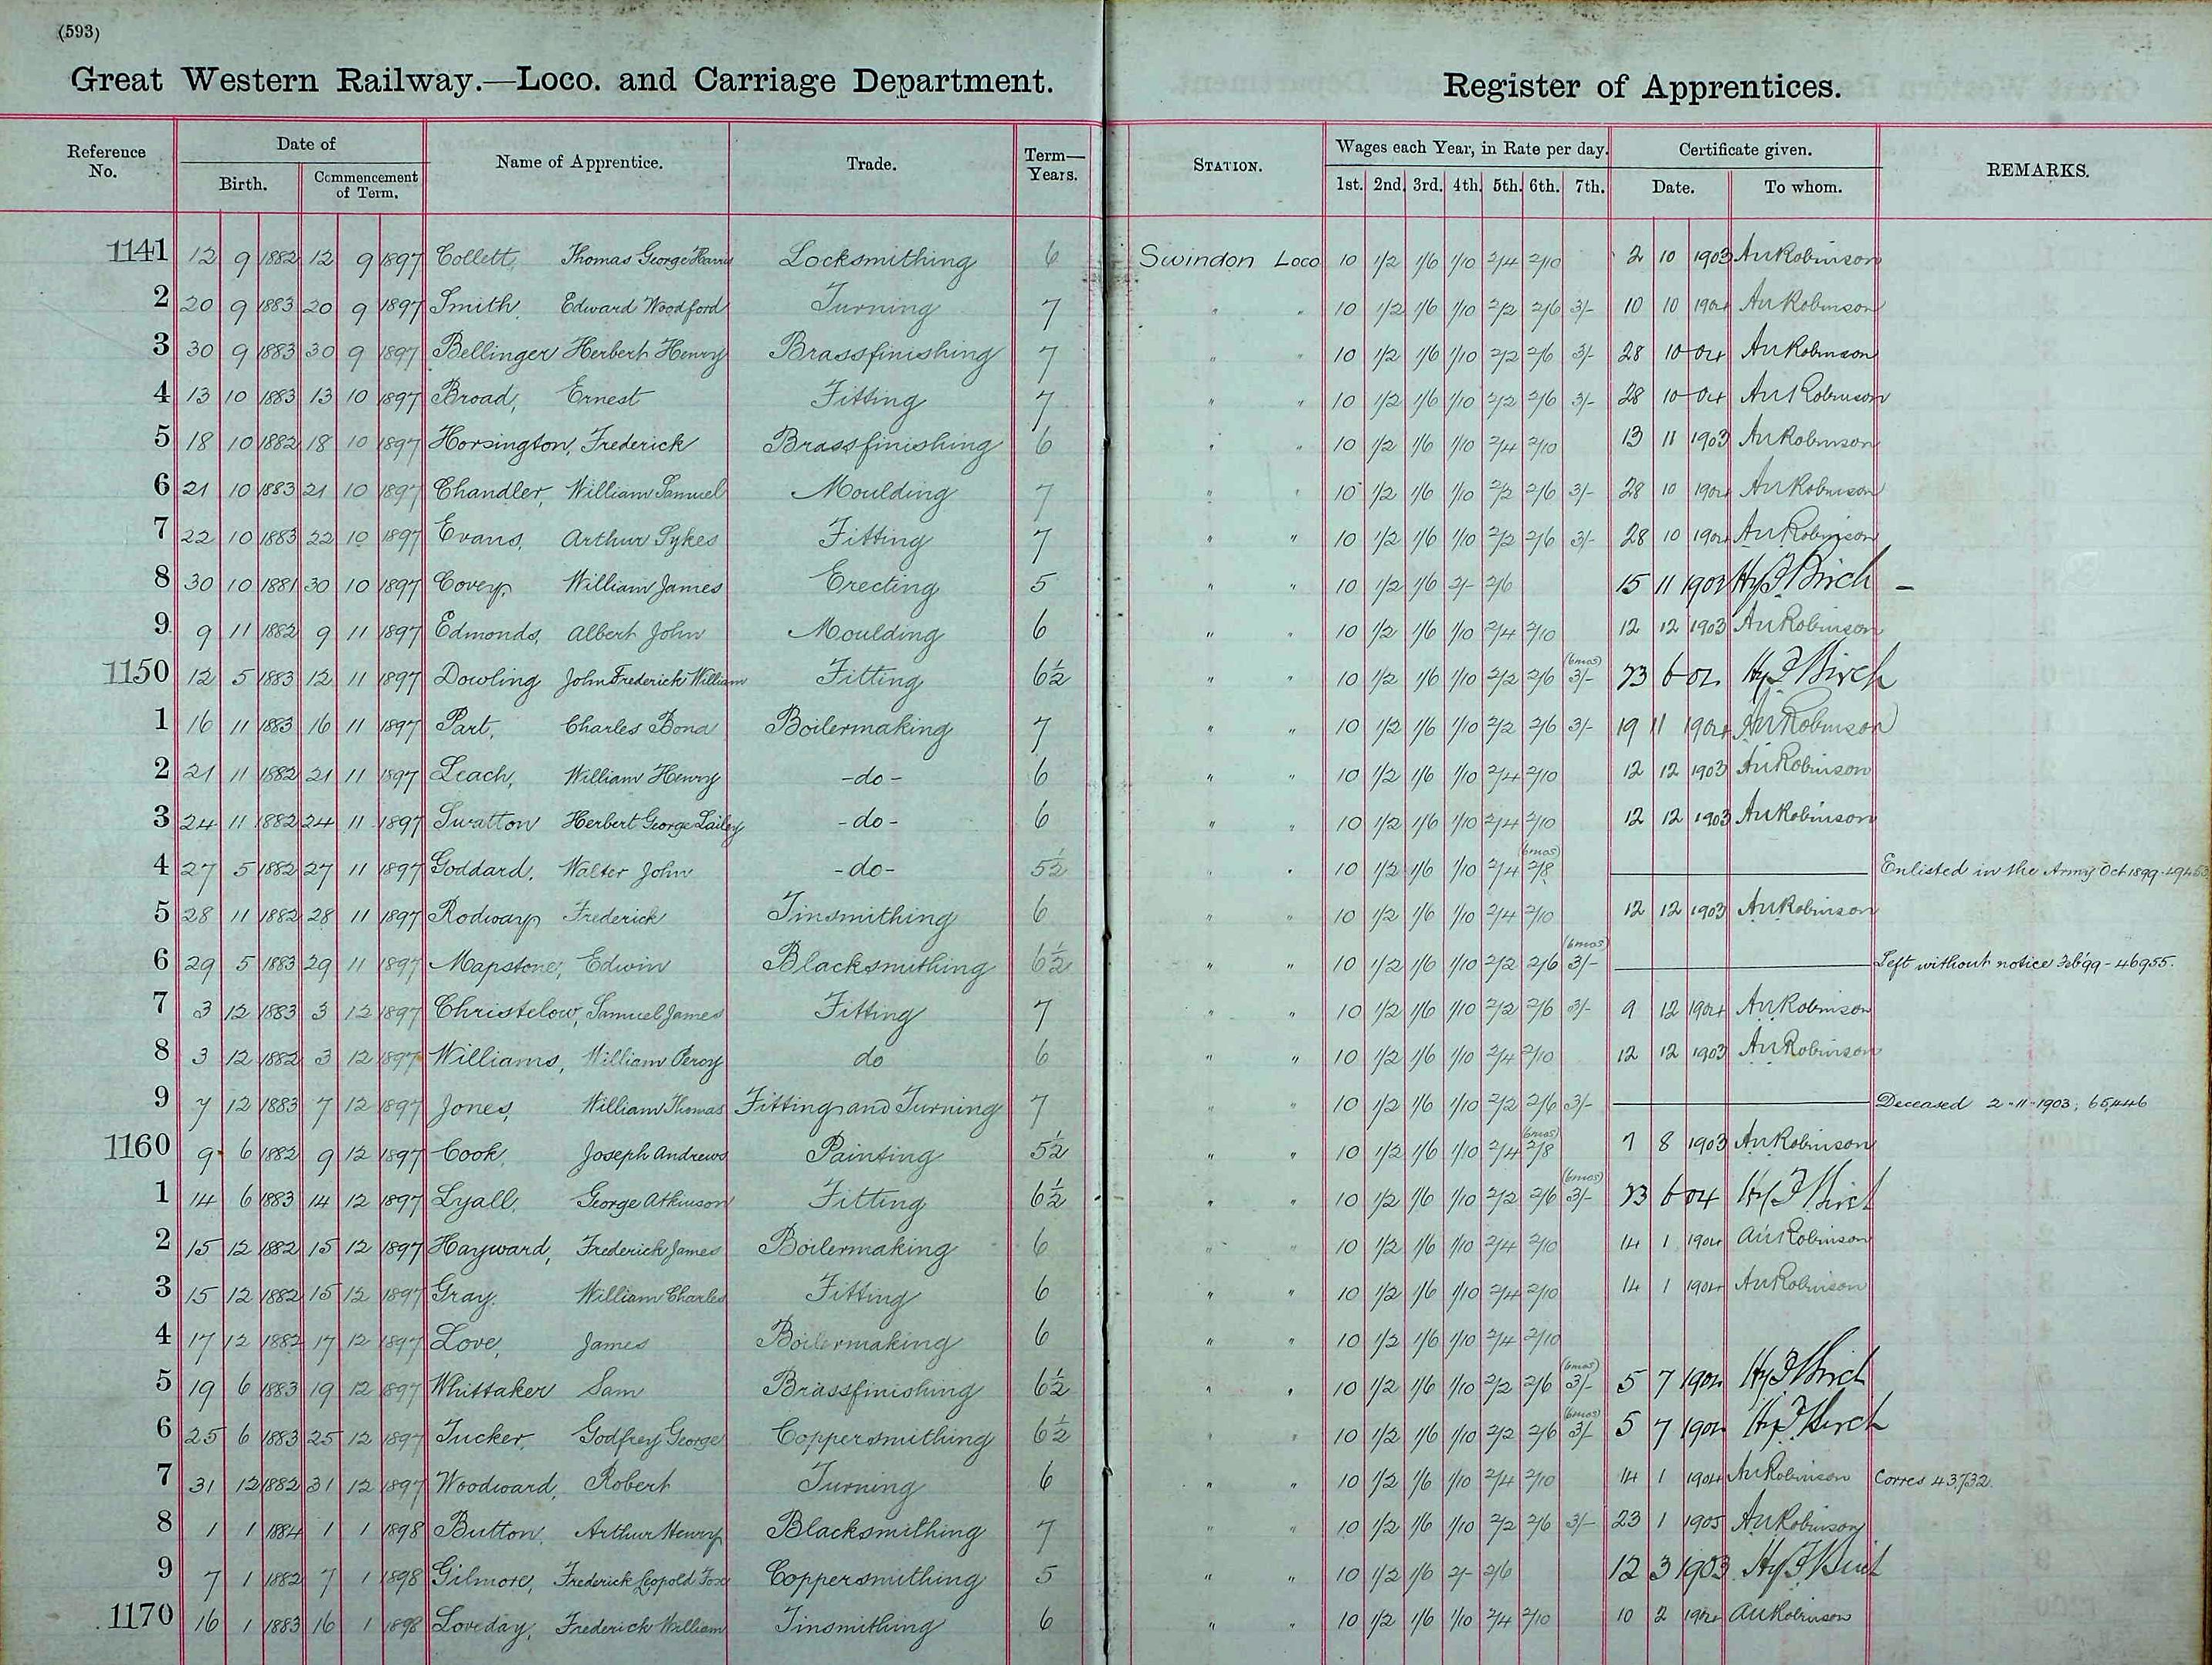 (593)
Great Western Railway.—Loco. and Carriage Department. Register of Apprentices.
Reference No. Date of Birth. Commencement of Term. Name of Apprentice. Trade. Term—Years. STATION. Wages each Year, in Rate per day. 1st. 2nd. 3rd. 4th. 5th. 6th. 7th. Certificate given. Date. To whom. REMARKS.
1141 12 9 1882 12 9 1897 Collett, Thomas George Harris Locksmithing 6 Swindon Loco 10 1/2 1/6 1/10 2/4 2/10 2 10 1903 AuRobinson
2 20 9 1883 20 9 1897 Smith, Edward Woodford Turning 7 " " 10 1/2 1/6 1/10 2/2 2/6 3/- 10 10 1904 AuRobinson
3 30 9 1883 30 9 1897 Bellinger Herbert Henry Brassfinishing 7 " " 10 1/2 1/6 1/10 2/2 2/6 3/- 28 10 04 AuRobinson
4 13 10 1883 13 10 1897 Broad, Ernest Fitting 7 " " 10 1/2 1/6 1/10 2/2 2/6 3/- 28 10 04 AuRobinson
5 18 10 1882 18 10 1897 Horsington, Frederick Brassfinishing 6 " " 10 1/2 1/6 1/10 2/4 2/10 13 11 1903 AuRobinson
6 21 10 1883 21 10 1897 Chandler, William Samuel Moulding 7 " " 10 1/2 1/6 1/10 2/2 2/6 3/- 28 10 1904 AuRobinson
7 22 10 1883 22 10 1897 Evans, Arthur Sykes Fitting 7 " " 10 1/2 1/6 1/10 2/2 2/6 3/- 28 10 1904 AuRobinson
8 30 10 1881 30 10 1897 Covey, William James Erecting 5 " " 10 1/2 1/6 2/- 2/6 15 11 1902 Hy F Birch -
9 9 11 1882 9 11 1897 Edmonds, Albert John Moulding 6 " " 10 1/2 1/6 1/10 2/4 2/10 12 12 1903 AuRobinson
1150 12 5 1883 12 11 1897 Dowling John Frederick William Fitting 6½ " " 10 1/2 1/6 1/10 2/2 2/6 (6mos) 3/- 23 6 04 Hy F Birch
1 16 11 1883 16 11 1897 Part, Charles Bond Boilermaking 7 " " 10 1/2 1/6 1/10 2/2 2/6 3/- 19 11 1904 AuRobinson
2 21 11 1882 21 11 1897 Leach, William Henry -do- 6 " " 10 1/2 1/6 1/10 2/4 2/10 12 12 1903 AuRobinson
3 24 11 1882 24 11 1897 Swatton Herbert George Lailey -do- 6 " " 10 1/2 1/6 1/10 2/4 2/10 12 12 1903 AuRobinson
4 27 5 1882 27 11 1897 Goddard, Walter John -do- 5½ " " 10 1/2 1/6 1/10 2/4 (6mos) 2/8 Enlisted in the Army Oct 1899
5 28 11 1882 28 11 1897 Rodway, Frederick Tinsmithing 6 " " 10 1/2 1/6 1/10 2/4 2/10 12 12 1903 AuRobinson
6 29 5 1883 29 11 1897 Mapstone, Edwin Blacksmithing 6½ " " 10 1/2 1/6 1/10 2/2 2/6 (6mos) 3/- Left without notice Feb'99 - 46955.
7 3 12 1883 3 12 1897 Christelow, Samuel James Fitting 7 " " 10 1/2 1/6 1/10 2/2 2/6 3/- 9 12 1904 AuRobinson
8 3 12 1882 3 12 1897 Williams, William Percy do 6 " " 10 1/2 1/6 1/10 2/4 2/10 12 12 1903 AuRobinson
9 7 12 1883 7 12 1897 Jones, William Thomas Fitting and Turning 7 " " 10 1/2 1/6 1/10 2/2 2/6 3/- Deceased 2-11-1903; 65446
1160 9 6 1882 9 12 1897 Cook, Joseph Andrews Painting 5½ " " 10 1/2 1/6 1/10 2/4 (6mos) 2/8 7 8 1903 AuRobinson
1 14 6 1883 14 12 1897 Lyall, George Atkinson Fitting 6½ " " 10 1/2 1/6 1/10 2/2 2/6 (6mos) 3/- 23 6 04 Hy F Birch
2 15 12 1882 15 12 1897 Hayward, Frederick James Boilermaking 6 " " 10 1/2 1/6 1/10 2/4 2/10 14 1 1904 AuRobinson
3 15 12 1882 15 12 1897 Gray, William Charles Fitting 6 " " 10 1/2 1/6 1/10 2/4 2/10 14 1 1904 AuRobinson
4 17 12 1882 17 12 1897 Love, James Boilermaking 6 " " 10 1/2 1/6 1/10 2/4 2/10
5 19 6 1883 19 12 1897 Whittaker Sam Brassfinishing 6½ " " 10 1/2 1/6 1/10 2/2 2/6 (6mos) 3/- 5 7 1904 Hy F Birch
6 25 6 1883 25 12 1897 Tucker, Godfrey George Coppersmithing 6½ " " 10 1/2 1/6 1/10 2/2 2/6 (6mos) 3/- 5 7 1904 Hy F Birch
7 31 12 1882 31 12 1897 Woodward, Robert Turning 6 " " 10 1/2 1/6 1/10 2/4 2/10 14 1 1904 AuRobinson Corres 43732.
8 1 1 1884 1 1 1898 Button, Arthur Henry Blacksmithing 7 " " 10 1/2 1/6 1/10 2/2 2/6 3/- 23 1 1905 AuRobinson
9 7 1 1882 7 1 1898 Gilmore, Frederick Leopold Fox Coppersmithing 5 " " 10 1/2 1/6 2/- 2/6 12 3 1903 Hy F Birch
1170 16 1 1883 16 1 1898 Loveday, Frederick William Tinsmithing 6 " " 10 1/2 1/6 1/10 2/4 2/10 10 2 1904 AuRobinson